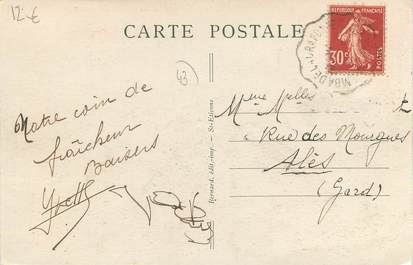 12 €
CARTE POSTALE
REPUBLIQUE FRANÇAISE
30c
POSTES
43
Notre coin de
fraîcheur
Baisers
Yvette
Bernard, édit.-imp. - St-Etienne
Mme Melles
Rue des Mourgues
Alès
(Gard)